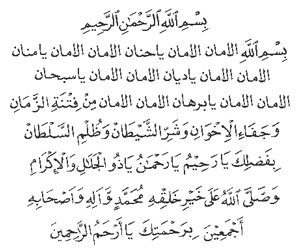 بِسْمِ اللّٰهِ الرَّحْمٰنِ الرَّحِيْمِ
بِسْمِ اللّٰهِ الامان الامان ياحنان الامان الامان يامنان
الامان الامان ياديان الامان الامان ياسبحان
الامان الامان يابرهان الامان الامان مِنْ فِتْنَةِ الزَّمَانِ
وَجَفَاءِ الْاِخْوَانِ وَشَرِّ الشَّيْطَانِ وَظُلْمِ السُّلْطَانِ
بِفَضْلِكَ يَا رَحِيْمُ يَا رَحْمٰنُ يَا ذُو الْجَلَالِ وَالْاِكْرَامِ
وَصَلَّى اللّٰهُ عَلٰى خَيْرِ خَلْقِهِ مُحَمَّدٍ وَّاٰلِهِ وَاَصْحَابِهِ
اَجْمَعِيْنَ بِرَحْمَتِكَ يَا اَرْحَمَ الرَّاحِمِيْنَ